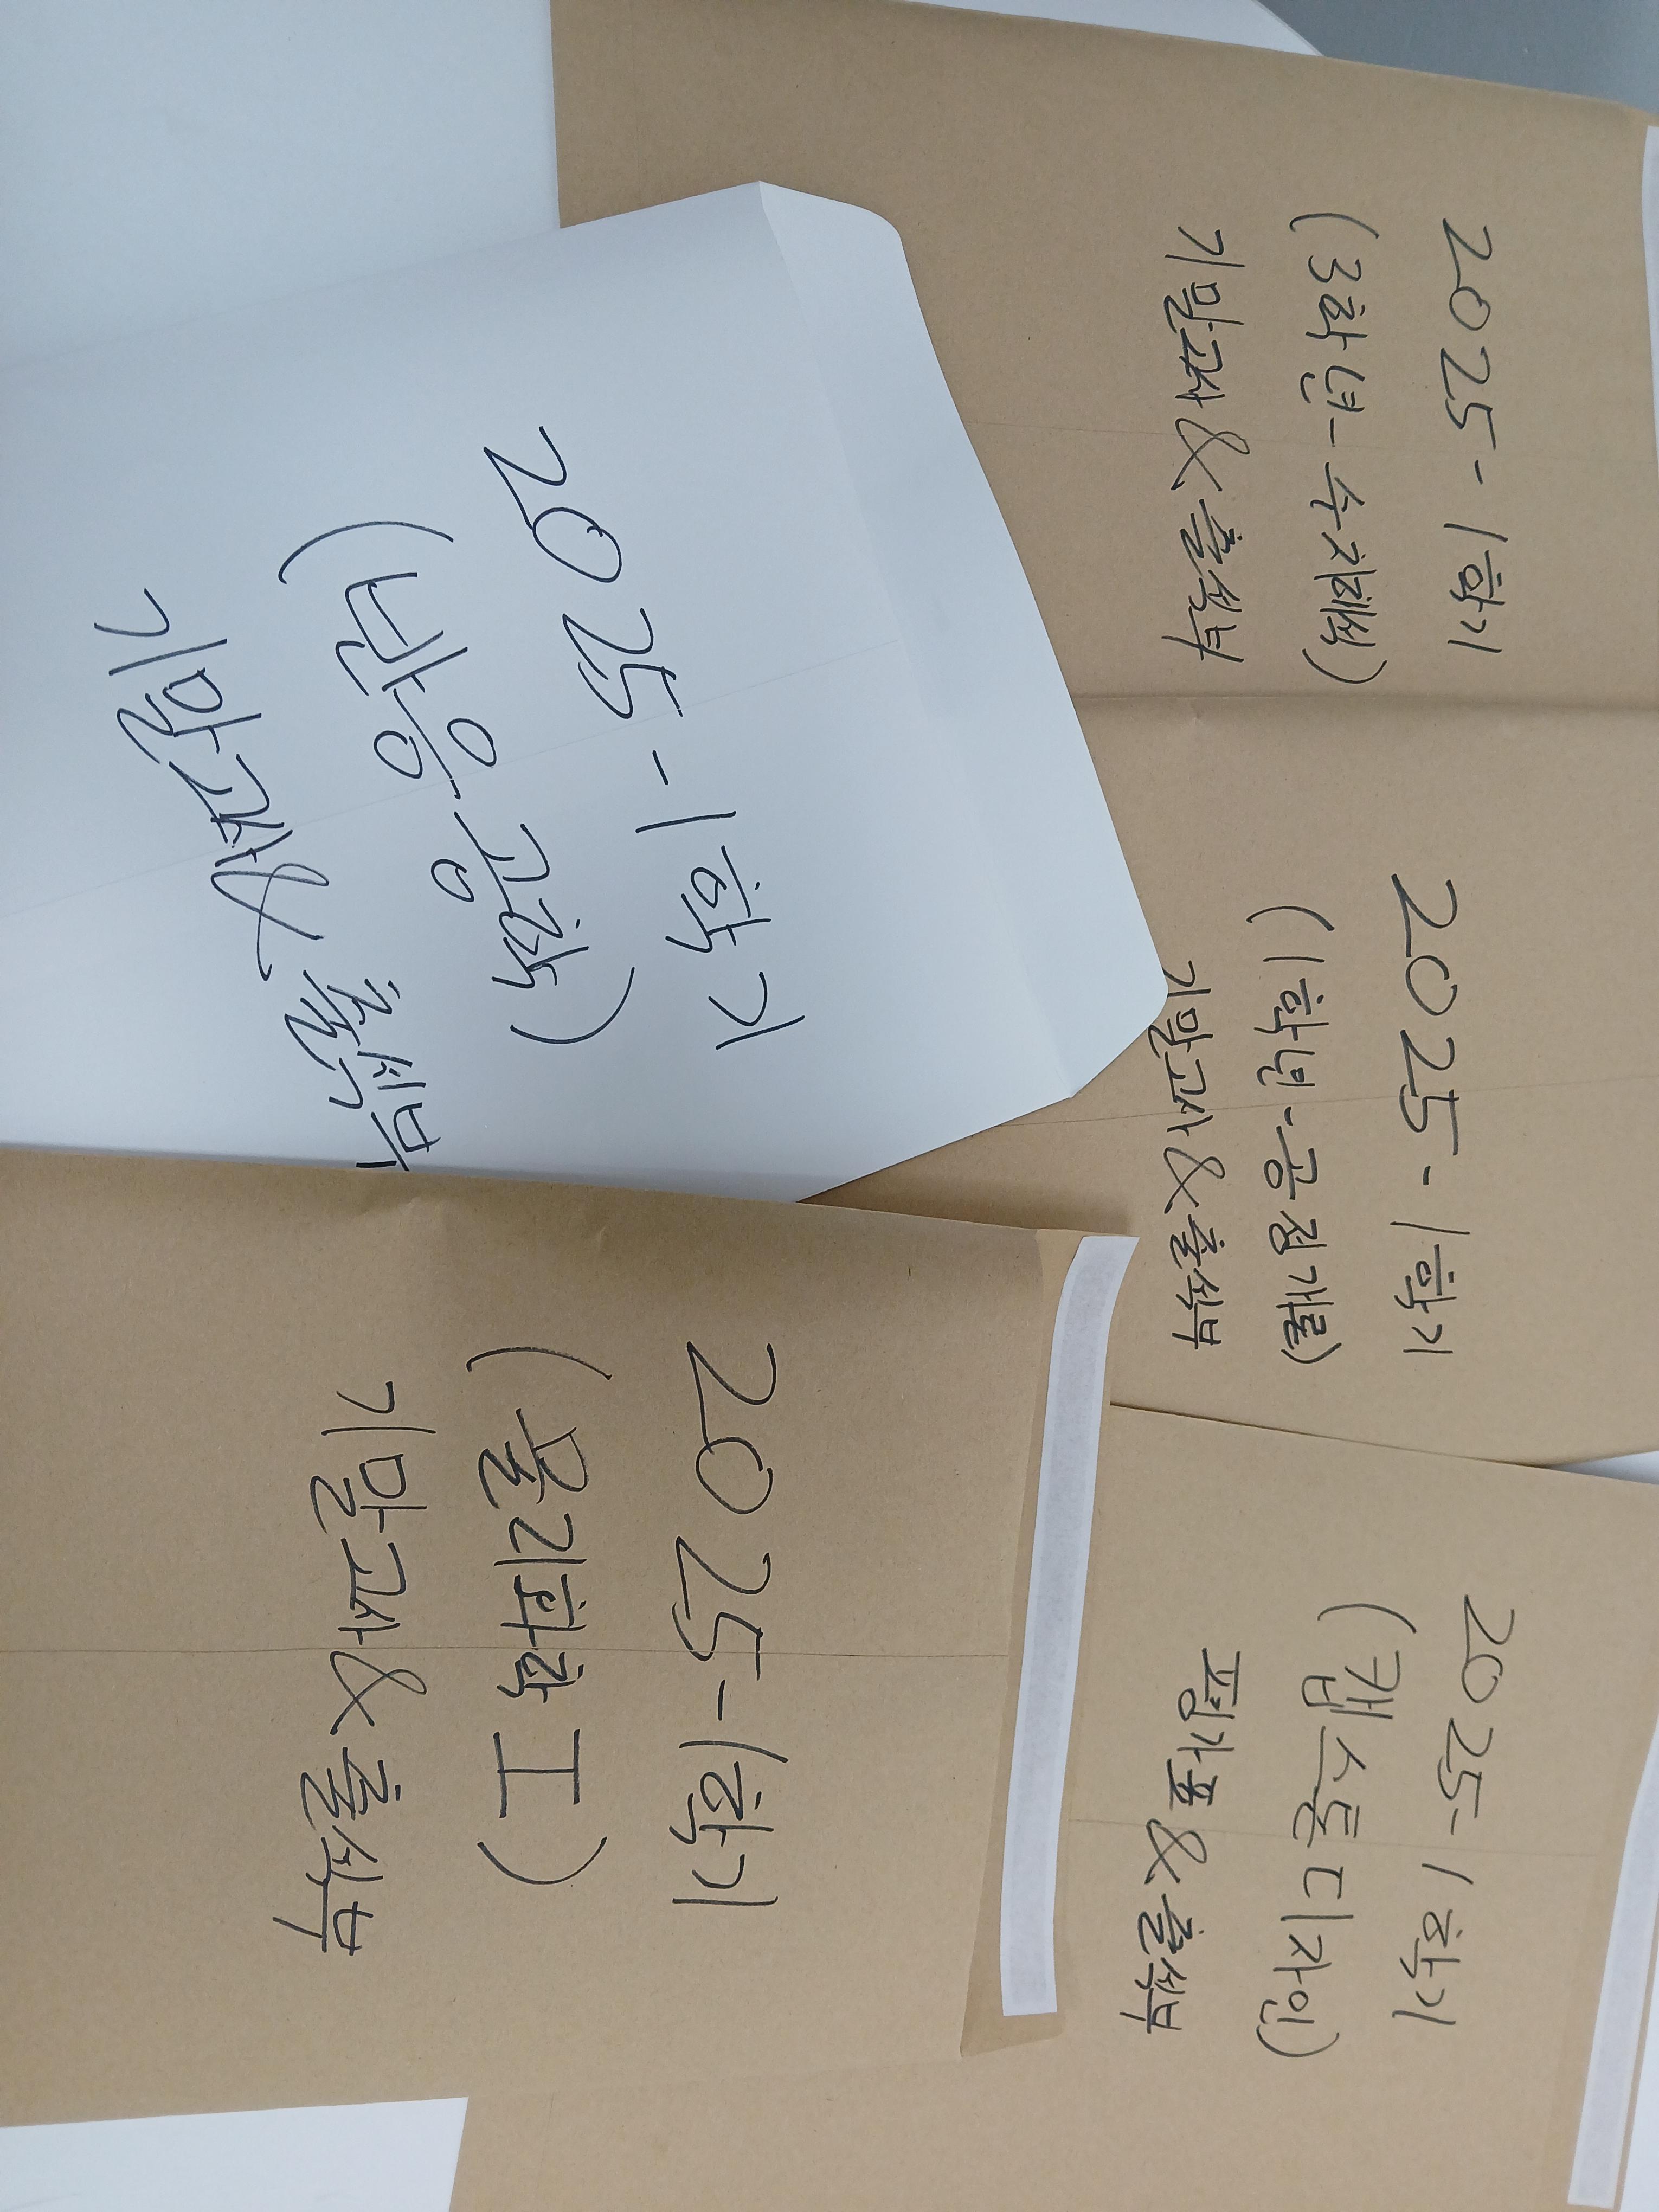 2025-1학기
(3학년-수치해석)
기말고사 & 출석부
2025-1학기
(1학년-공정개론)
기말고사 & 출석부
2025-1학기
(캡스톤디자인)
평가표 & 출석부
2025-1학기
(반응공학)
기말고사 & 출석부
2025-1학기
(물리화학 I)
기말고사 & 출석부